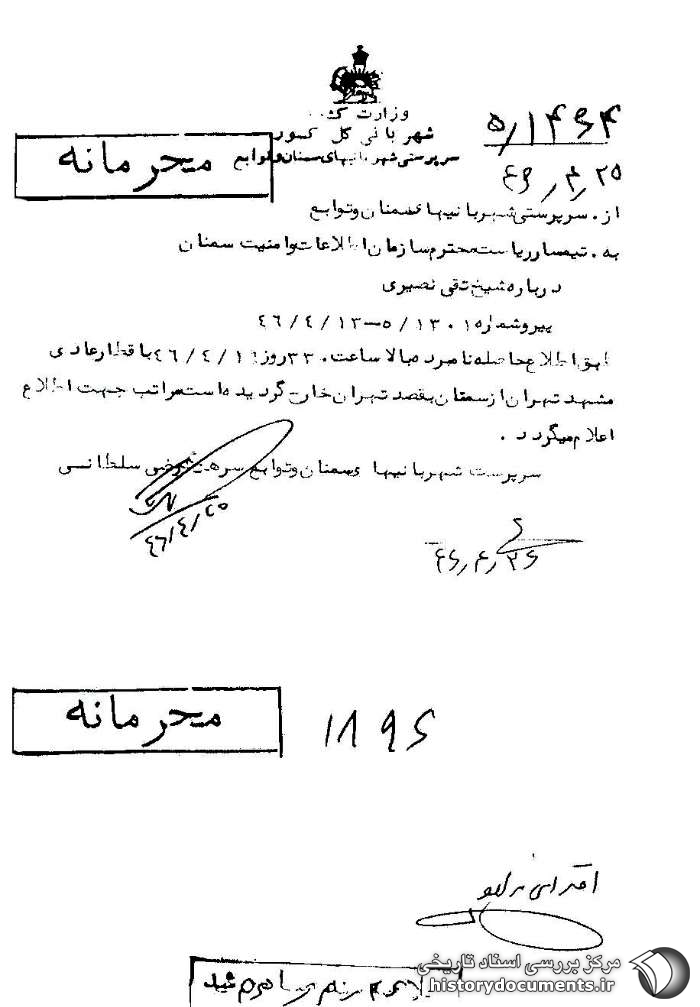 وزارت کشور
شهربانی کل کشور
سرپرستی شهربانیهای سمنان و توابع
محرمانه
۵/۱۴۶۴
۴۶/۴/۲۵
از . سرپرستی شهربانیهای سمنان و توابع
به . تیمسار ریاست محترم سازمان اطلاعات و امنیت سمنان
درباره شیخ تقی نصیری
پیرو شماره ۵/۱۳۰۱-۴۶/۴/۱۳
طبق اطلاع حاصله نامبرده بالا ساعت روز ۴۶/۴/۱۶ با قطار عادی
مشهد تهران از سمنان بقصد تهران خارج گردیده است مراتب جهت اطلاع
اعلام میگردد .
سرپرست شهربانیهای سمنان و توابع سرهنگ سلطانی
۴۶/۴/۲۵
۴۶/۴/۲۶
محرمانه
۱۸۹۶
مرکز بررسی اسناد تاریخی
historydocuments.ir
شد